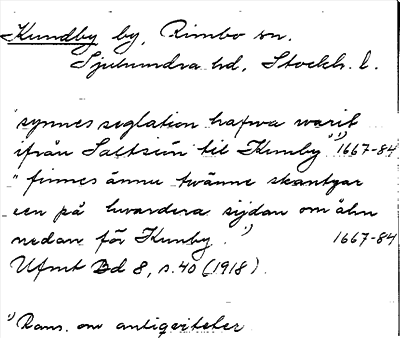 Kundby by, Rimbo sn.
Sjuhundra hd, Stockh. l.
synnes seglation hafwa warit
ifrån Saltsiön til Kunby" ¹) 1667-84
" finnes ännu twänne skantzar
een på hwardera sijdan om åhn
nedan för Kunby." ¹) 1667-84
Ufmt Bd 8, s. 40 (1918).
¹) Rans. om antiqviteter